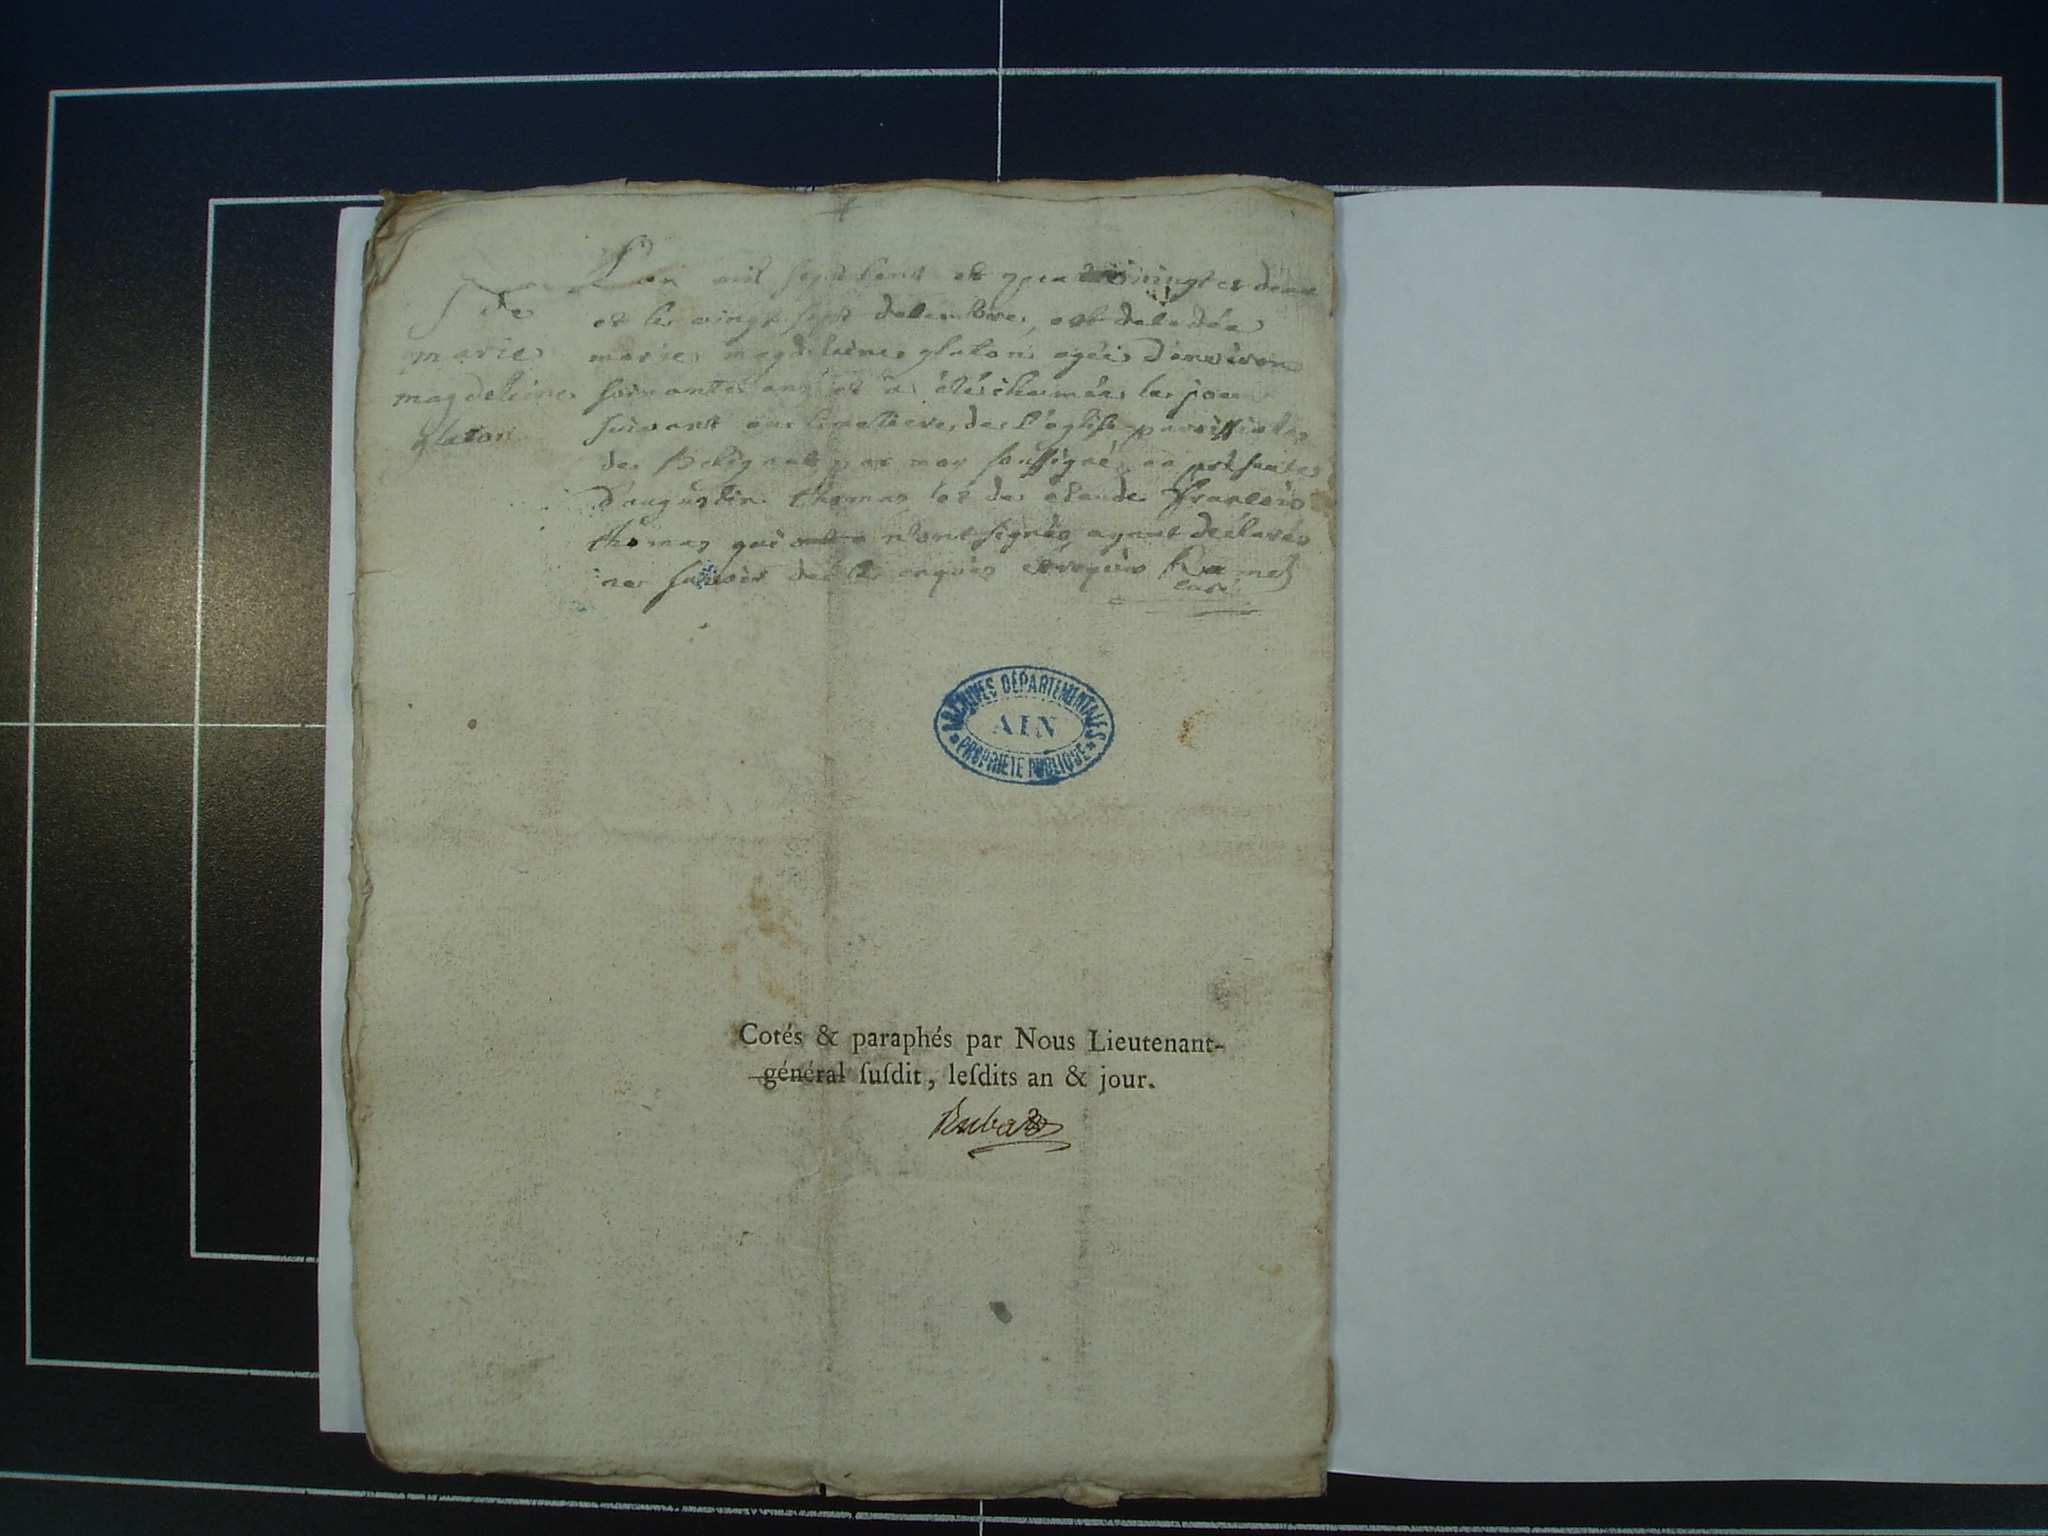 Sre de
marie
magdeleine
glaton
L'an mil sept cent et quatre vingt et deux
et le vingt sept decembre, est decedée
marie magdeleine glaton agée d'environ
soixante ans et a été inhumée le jour
suivant au cimetiere de l'église paroissiale
de Belignat par moy soussigné en présence
d'augustin thomas et de claude françois
thomas qui n'ont signés ayant declarés
ne savoir de ce enquis et requis Ramel
curé
ARCHIVES DÉPARTEMENTALES
AIN
PROPRIÉTÉ PUBLIQUE
Cotés & paraphés par Nous Lieutenant-
général ſuſdit, leſdits an & jour.